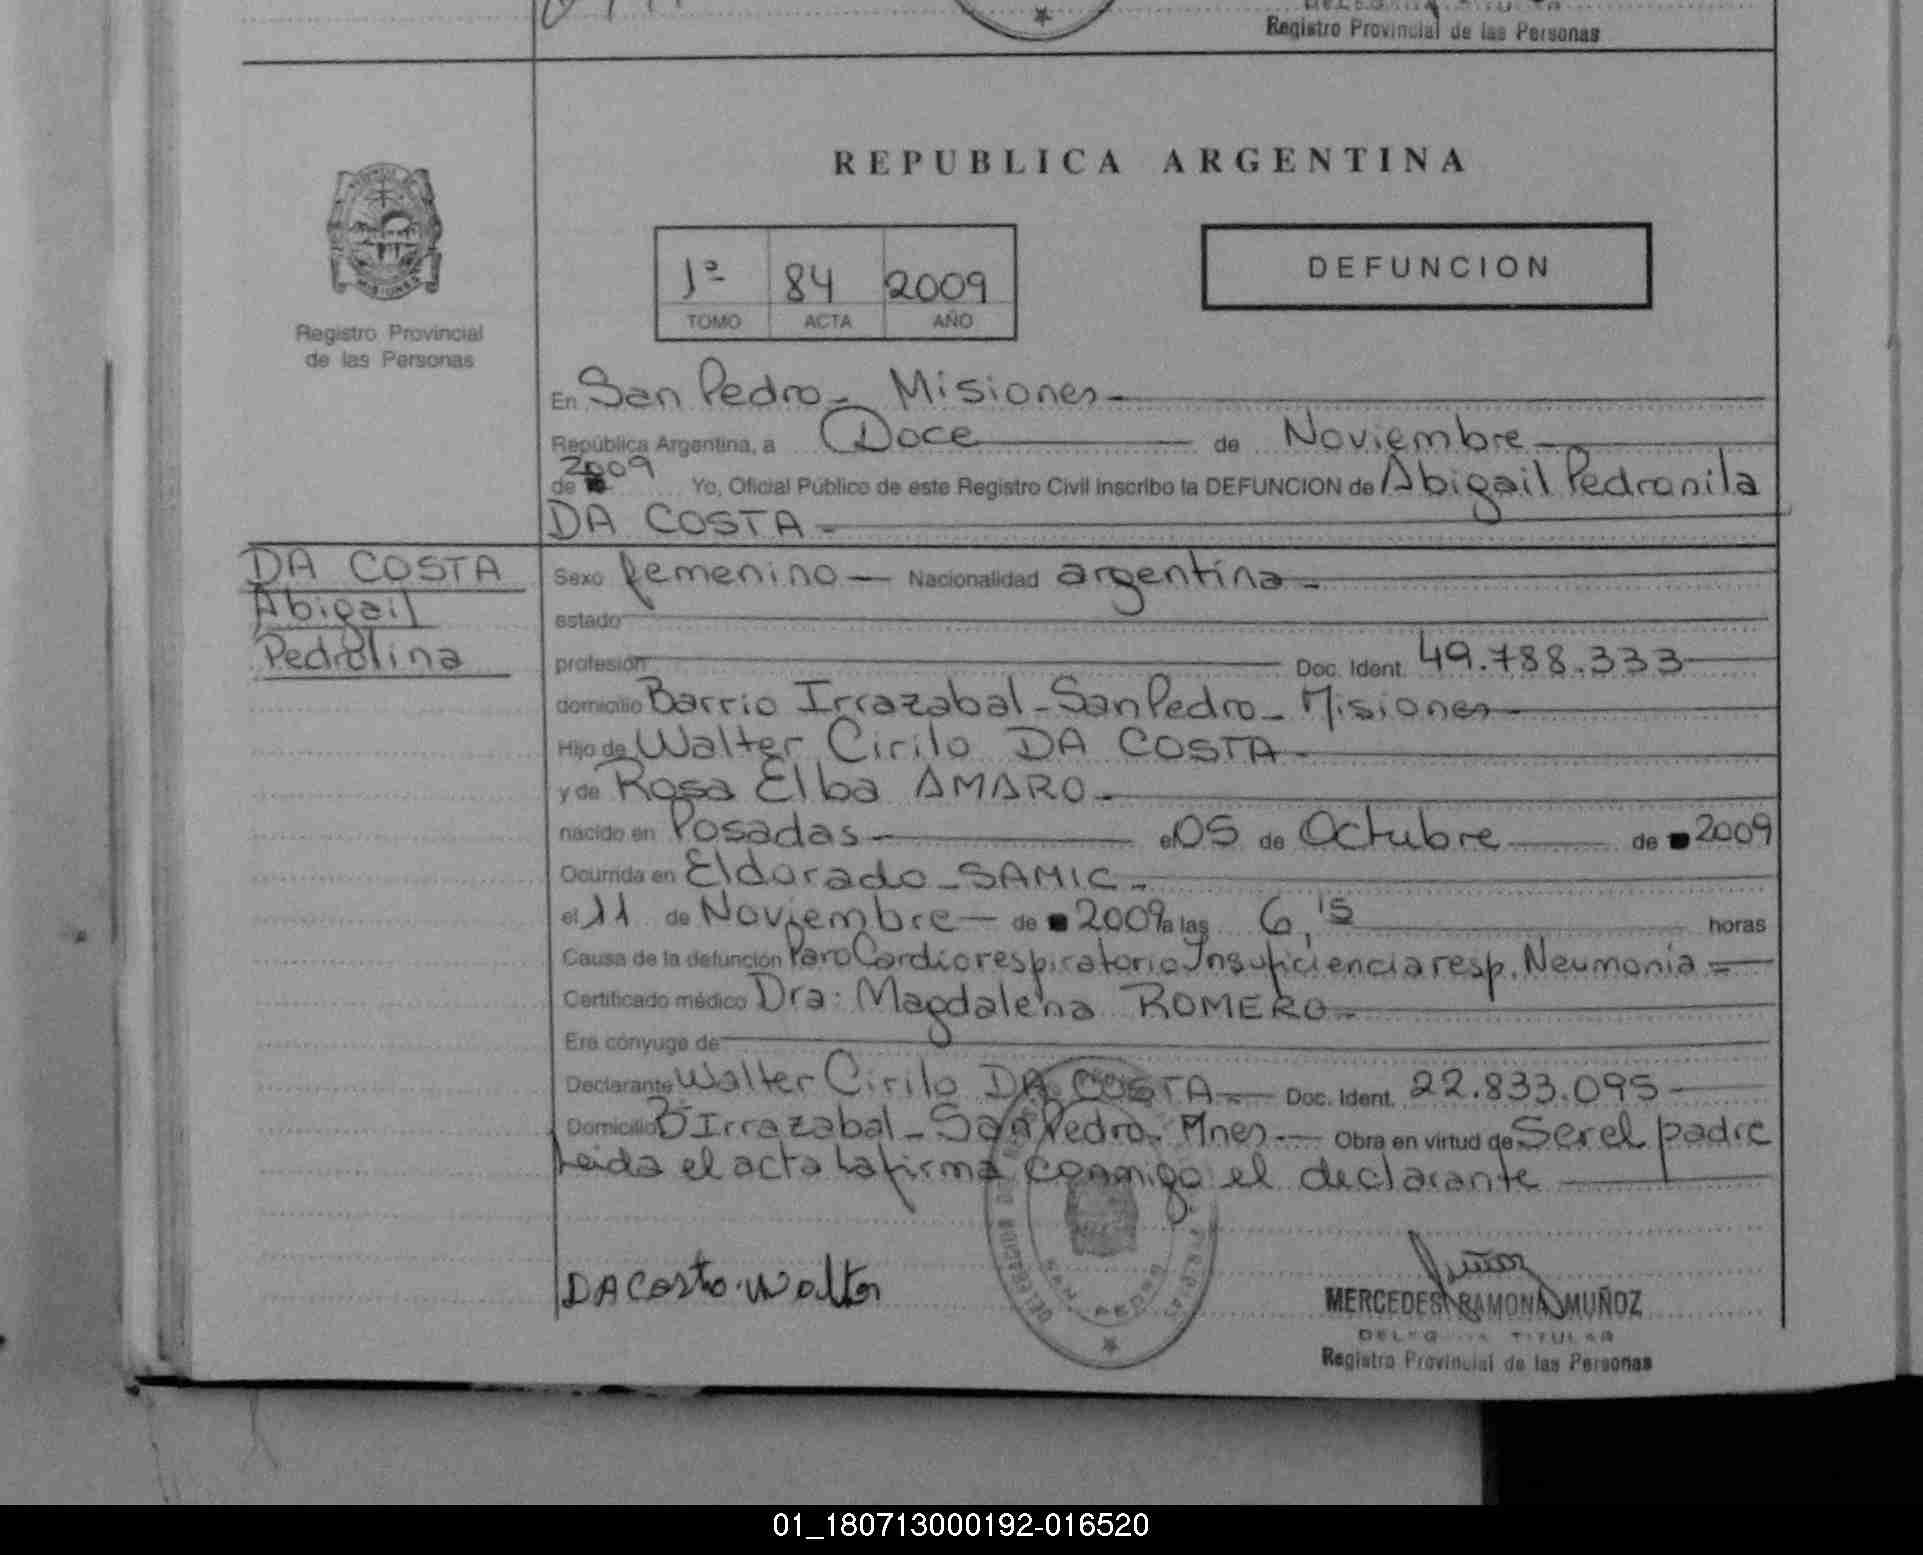 Registro Provincial de las Personas
REPUBLICA ARGENTINA
1ª 84 2009
TOMO ACTA AÑO
DEFUNCION
MISIONES
Registro Provincial
de las Personas
En San Pedro - Misiones
República Argentina, a Doce de Noviembre
de 2009 Yo, Oficial Público de este Registro Civil inscribo la DEFUNCION de Abigail Pedronila
DA COSTA
DA COSTA
Abigail
Pedrolina
Sexo femenino Nacionalidad argentina
estado
profesión Doc. Ident. 49.788.333
domicilio Barrio Irrazabal - San Pedro - Misiones
Hijo de Walter Cirilo DA COSTA
y de Rosa Elba AMARO
nacido en Posadas el 05 de Octubre de 2009
Ocurrida en Eldorado - SAMIC
el 11 de Noviembre de 2009 a las 6,15 horas
Causa de la defunción Paro Cardiorespiratorio Insuficiencia resp. Neumonia
Certificado médico Dra: Magdalena ROMERO
Era cónyuge de
Declarante Walter Cirilo DA COSTA Doc. Ident. 22.833.095
Domicilio Bº Irrazabal - San Pedro - Mnes Obra en virtud de Ser el padre
Leida el acta la firma conmigo el declarante
DA Costa Walter
Muñoz
MERCEDES RAMONA MUÑOZ
DELEGADA TITULAR
Registro Provincial de las Personas
01_180713000192-016520